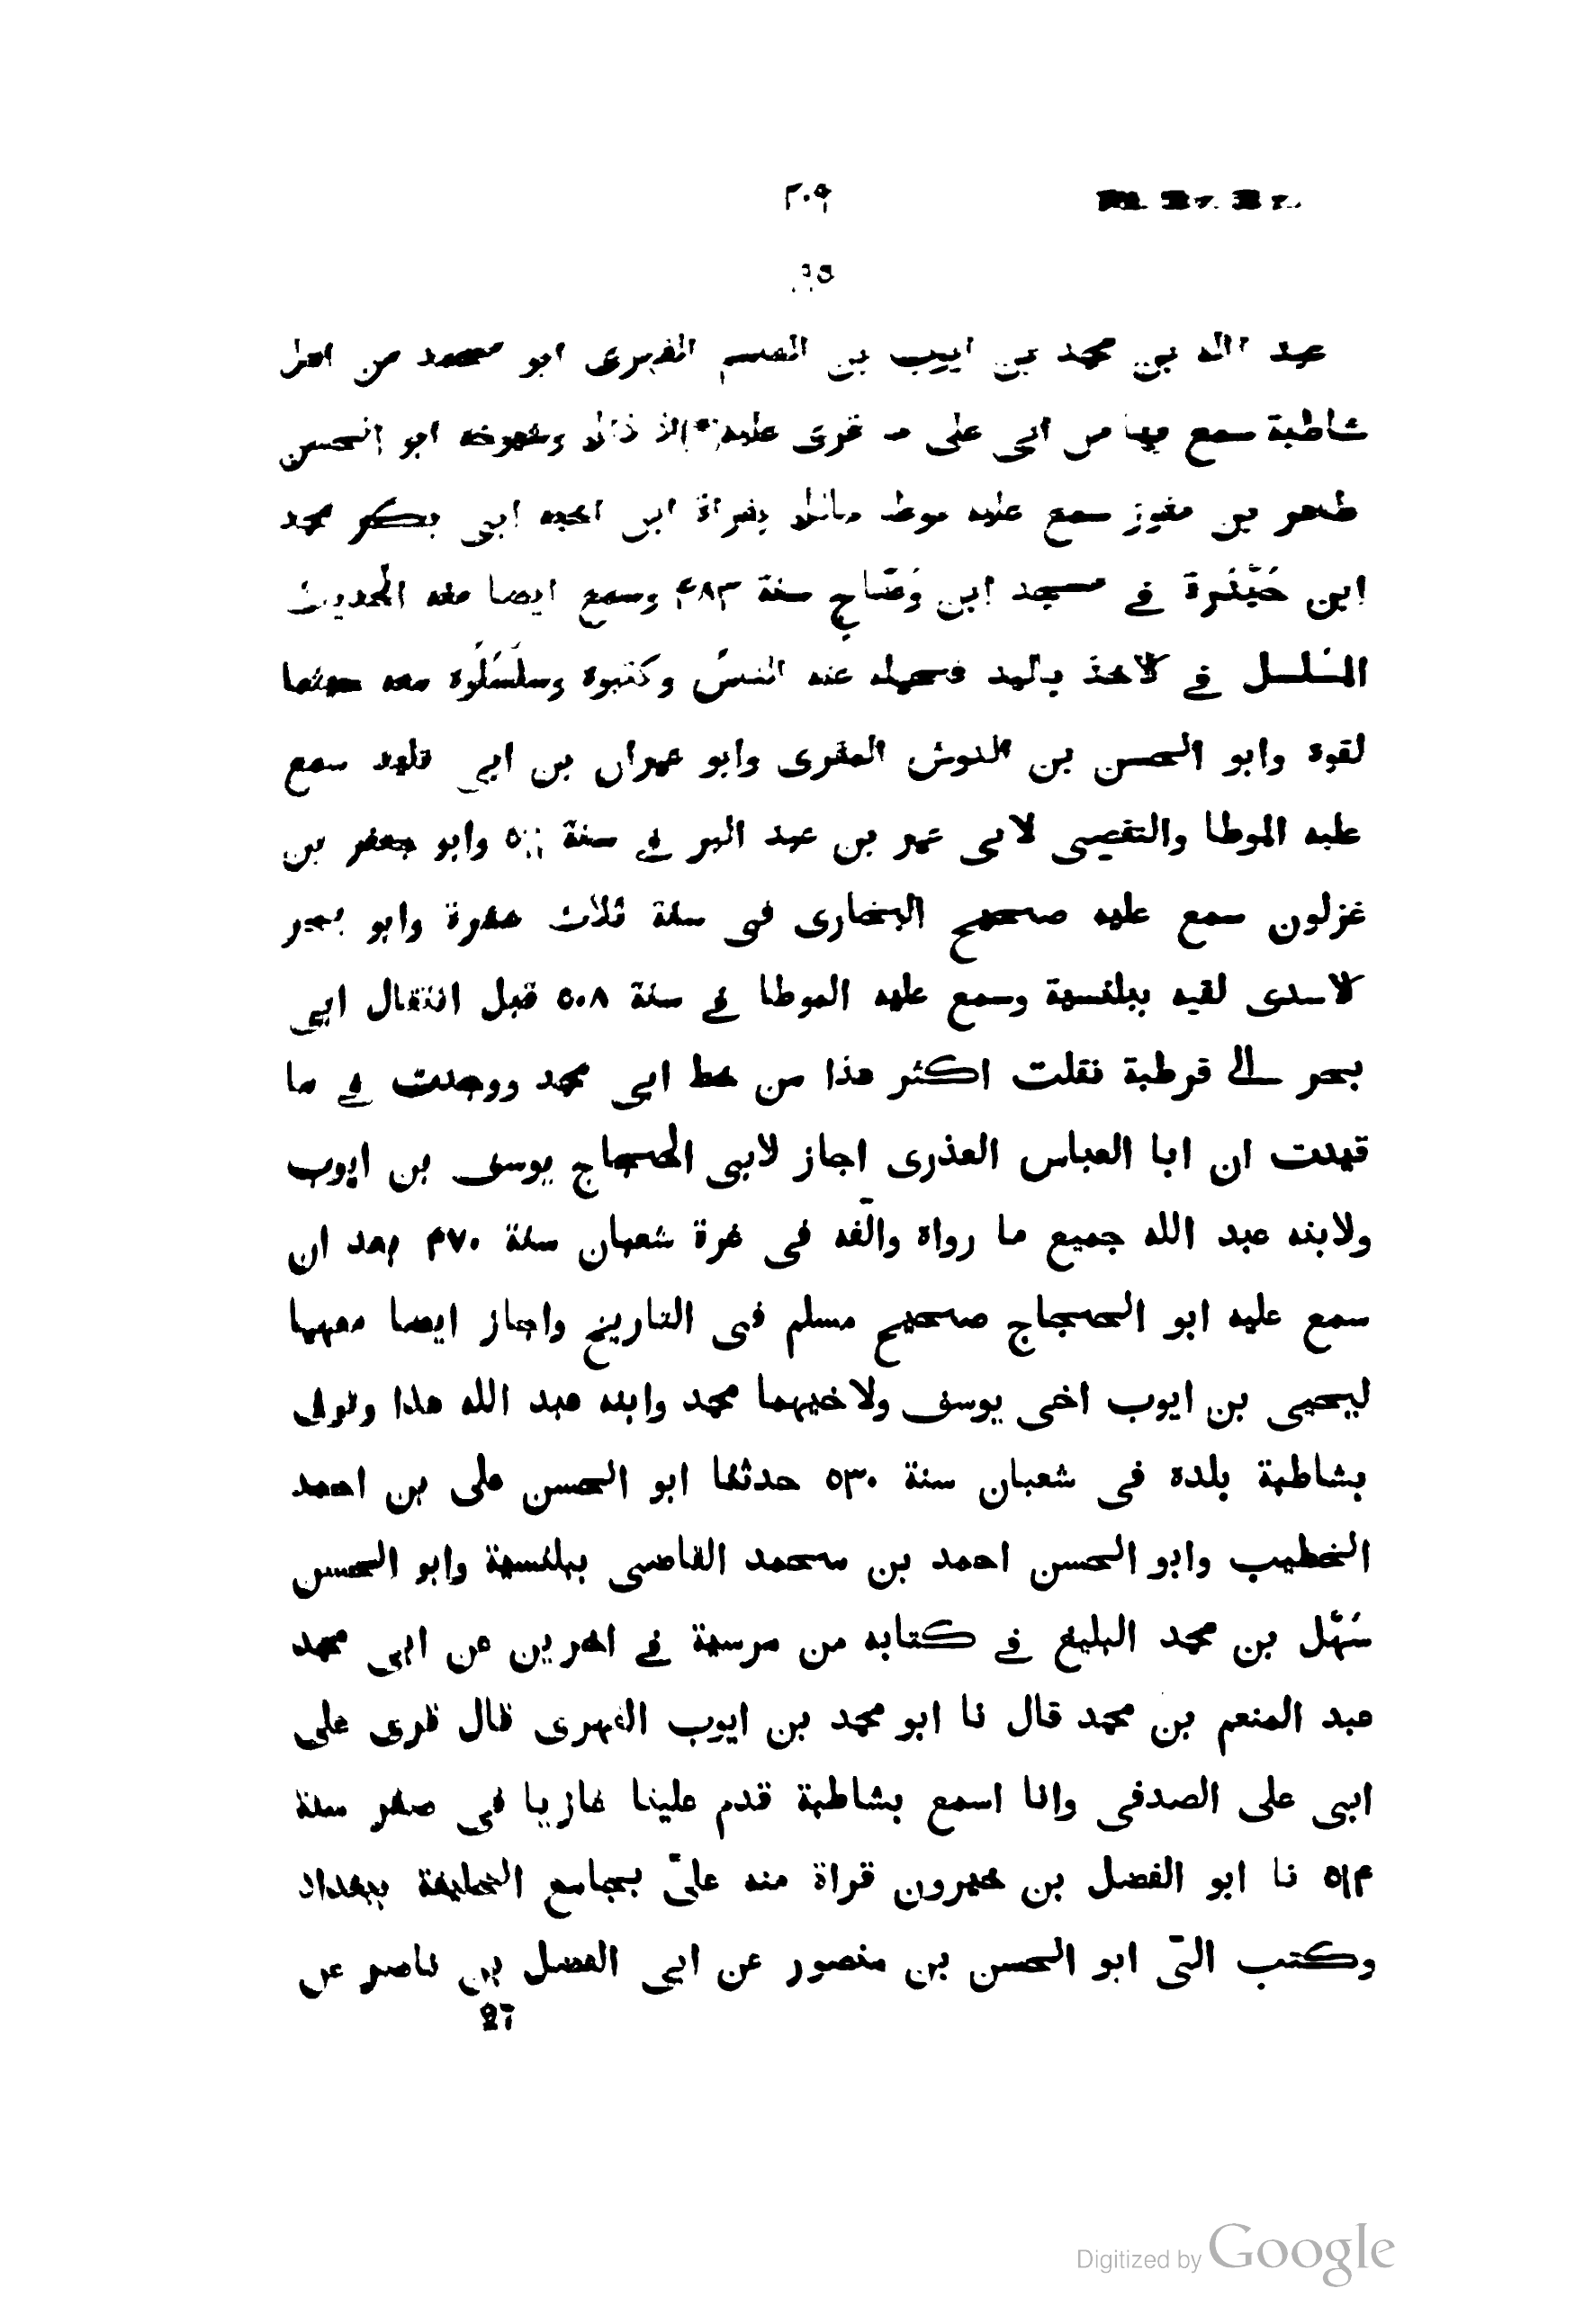 ٢٠٩
عبد الله بن محمد بن ايوب بن القسم الفهرى ابو محمد من اهل
شاطبة سمع بها من ابى على ما قرى عليه اذ ذاك وشيوخه ابو الحسن
طاهر بن مفوز سمع عليه موطا مالك بقراة ابن اخيه ابى بكر محمد
ابن حَيْدَرة فى مسجد ابن وَضّاح سنة ٤٨٣ وسمع ايضا منه الحديث
المسَلسل فى الاخذ باليد فحمله عنه الناس وكتبوه وسلْسَلُوه معه حيثما
لقوه وابو الحسن بن الدوش المقرى وابو عمران بن ابى تليد سمع
عليه الموطا والتقصى لابى عمر بن عبد البر فى سنة وابو جعفر بن
غزلون سمع عليه صحيح البخارى فى سنة ثلاث عشرة وابو بحر
الاسدى لقيه ببلنسية وسمع عليه الموطا فى سنة ٥٠٨ قبل انتقال ابى
بحر الى قرطبة نقلت اكثر هذا من خط ابى محمد ووجدت فى ما
قيدت ان ابا العباس العذرى اجاز لابى الحجاج يوسف بن ايوب
ولابنه عبد الله جميع ما رواه والّفه فى غرة شعبان سنة ٤٧٠ بعد ان
سمع عليه ابو الحجاج صحيح مسلم فى التاريخ واجاز ايضا معهما
ليحيى بن ايوب اخى يوسف ولاخيهما محمد وابنه عبد الله هذا وتوفى
بشاطبة بلده فى شعبان سنة ٥٣٠ حدثنا ابو الحسن على بن احمد
الخطيب وابو الحسن احمد بن محمد القاضى ببلنسية وابو الحسن
سَهْل بن محمد البليغ فى كتابه من مرسية فى اخرين عن ابى محمد
عبد المنعم بن محمد قال نا ابو محمد بن ايوب الفهرى قال قرى على
ابى على الصدفى وانا اسمع بشاطبة قدم علينا غازيا فى صفر سنة
٥١٤ نا ابو الفضل بن خيرون قراة منه علىّ بجامع الخليفة ببغداد
وكتب الىّ ابو الحسن بن منصور عن ابى الفضل بن ناصر عن
27
Digitized by Google